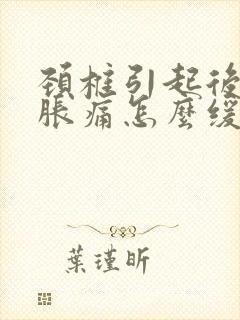 頸椎引起後
脹痛怎麼緩
葉瑾昕